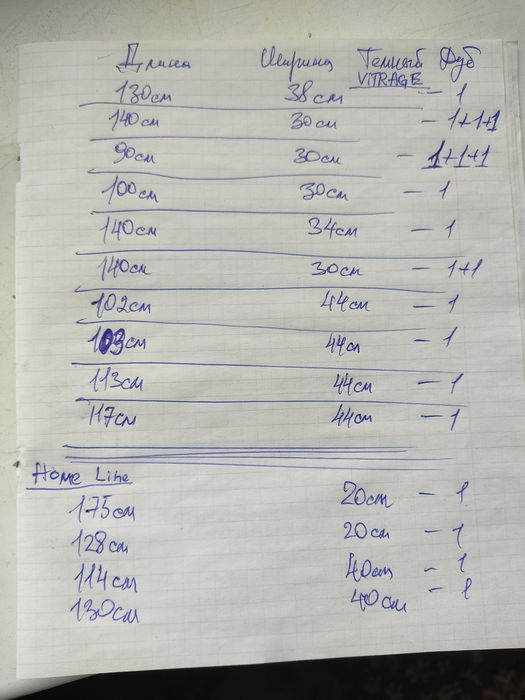 Длина Ширина Темный Дуб
VITRAGE
130см 38см - 1
140см 30см - 1+1+1
90см 30см - 1+1+1
100см 30см - 1
140см 34см - 1
140см 30см - 1+1
102см 44см - 1
103см 44см - 1
113см 44см - 1
117см 44см - 1
Home Line
175см 20см - 1
128см 20см - 1
114см 40см - 1
130см 40см - 1